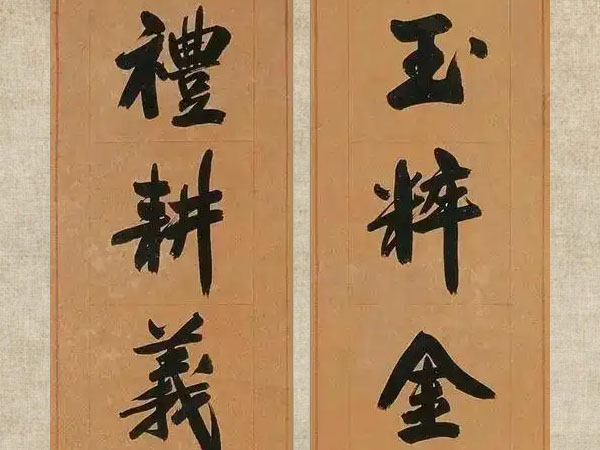 玉粹金
禮耕義